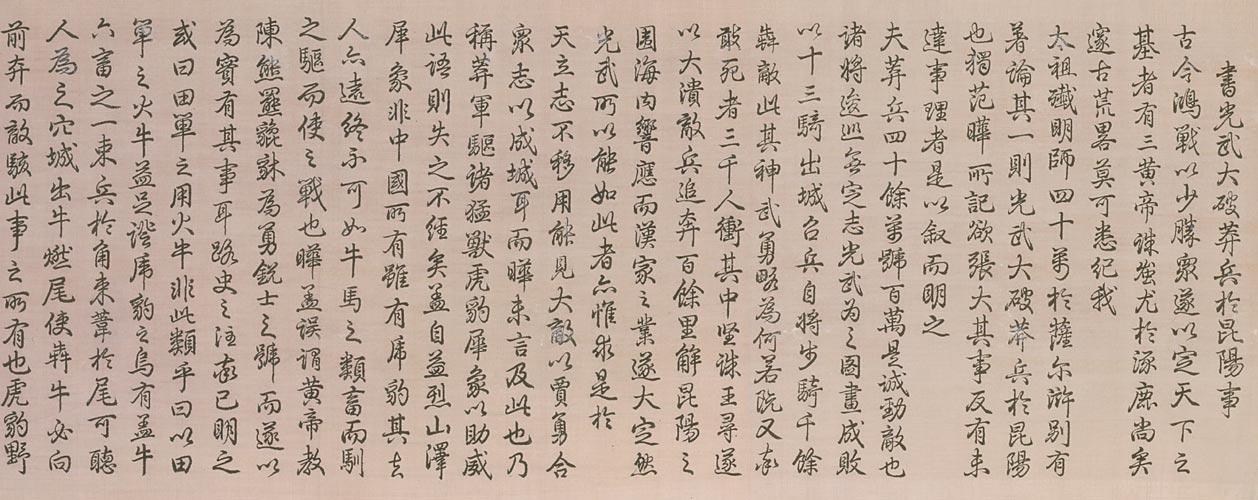 書光武大破莽兵於昆陽事
古今鴻戰以少勝衆遂以定天下之
基者有三黃帝誅蚩尤於涿鹿尚矣
邃古荒畧莫可悉紀我
太祖殲明師四十萬於薩尔滸別有
著論其一則光武大破莽兵於昆陽
也獨范曄所記欲張大其事反有未
達事理者是以叙而明之
夫莽兵四十餘萬號百萬是誠勁敵也
諸將逡巡無定志光武為之圖畫成敗
以十三騎出城召兵自將步騎千餘
犇敵此其神武勇略為何若既又率
敢死者三千人衝其中堅誅王尋遂
以大潰敵兵追奔百餘里解昆陽之
圍海内響應而漢家之業遂大定然
光武所以能如此者亦惟求是於
天立志不移用能見大敵以賈勇合
衆志以成城耳而曄未言及此也乃
稱莽軍驅諸猛獸虎豹犀象以助威
此語則失之不經矣盖自益烈山澤
犀象非中國所有雖有虎豹其去
人亦遠終不可如牛馬之類畜而馴
之驅而使之戰也曄盖誤謂黃帝教
陳熊羆貔貅為勇鋭士之號而遂以
為實有其事耳路史之注率已明之
或曰田單之用火牛非此類乎曰以田
單之火牛益足證虎豹之烏有盖牛
六畜之一束兵於角束葦於尾可聽
人為之穴城出牛燃尾使犇牛必向
前奔而敵駭此事之所有也虎豹野